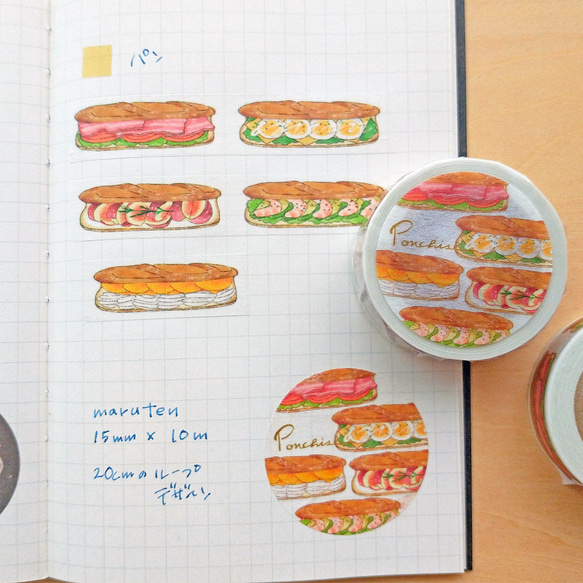 パン
Ponchise
maruten
15mm x 10m
Ponchise
20cmのループ
デザイン